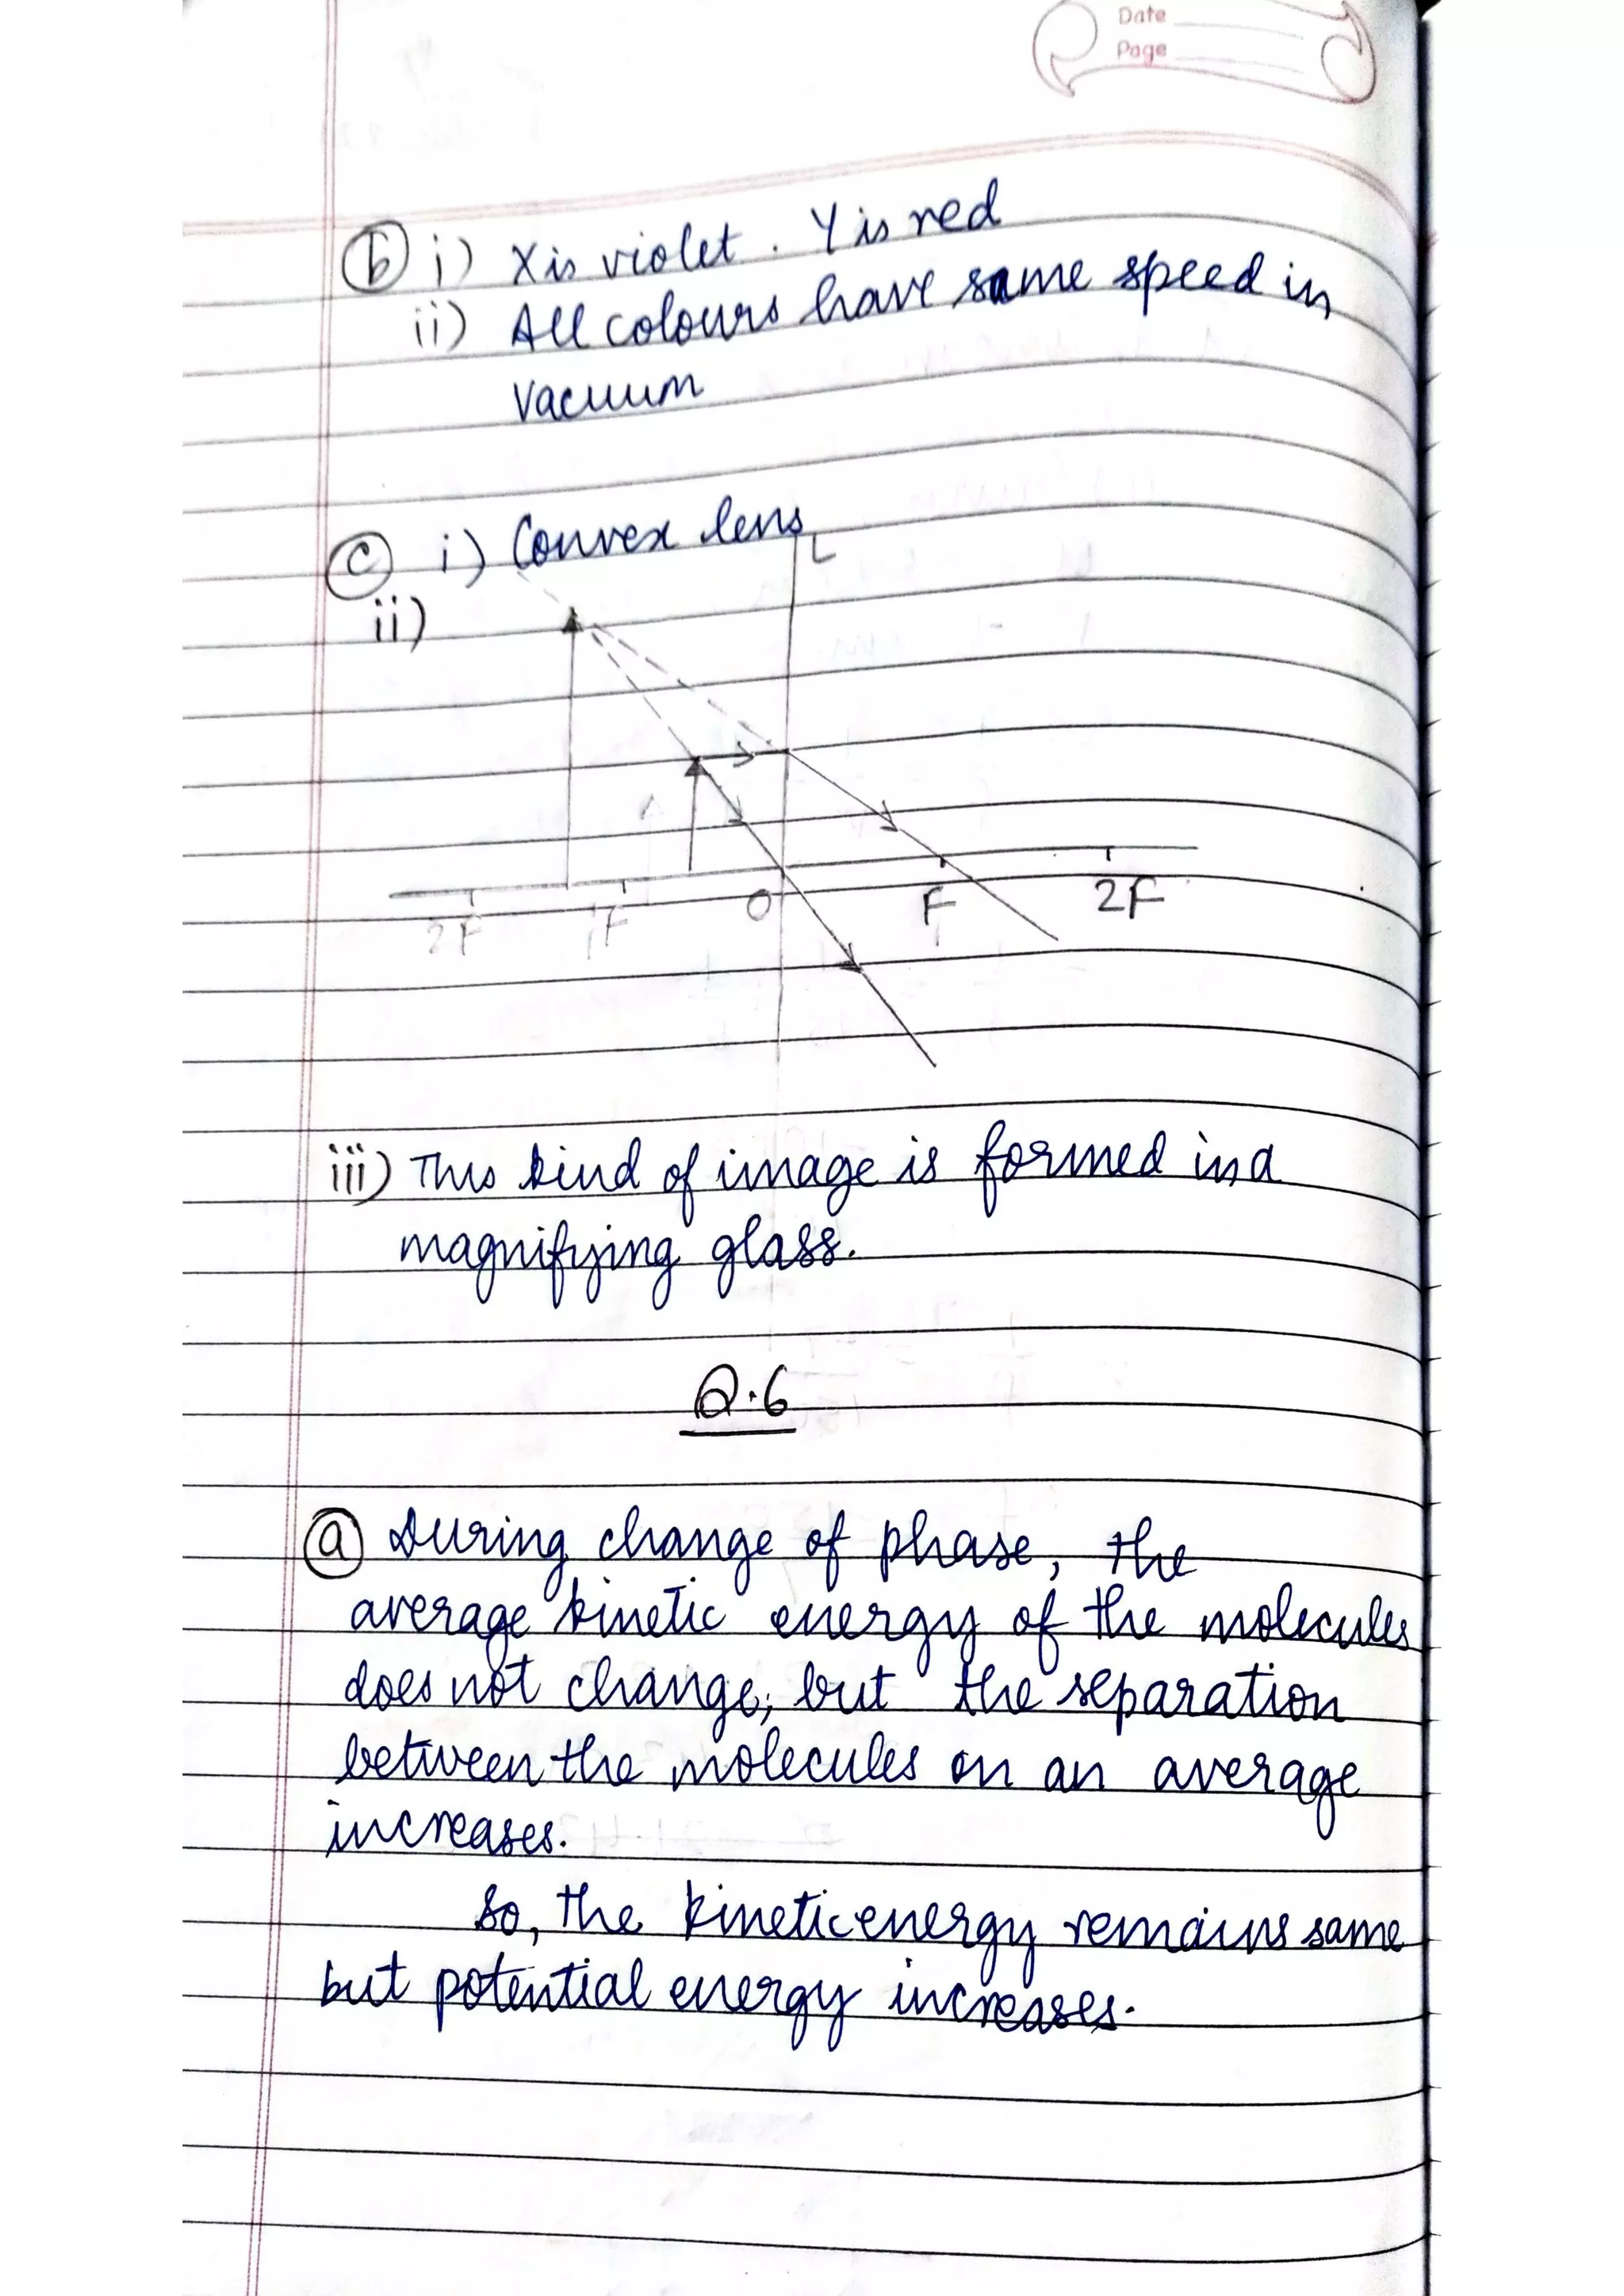 Date
Page
b i) X is violet. Y is red
ii) All colours have same speed in
vacuum
c i) Convex lens
L
ii)
2F F O F 2F
iii) This kind of image is formed in a
magnifying glass.
Q.6
a During change of phase, the
average kinetic energy of the molecules
does not change, but the separation
between the molecules on an average
increases.
So, the kinetic energy remains same
but potential energy increases.